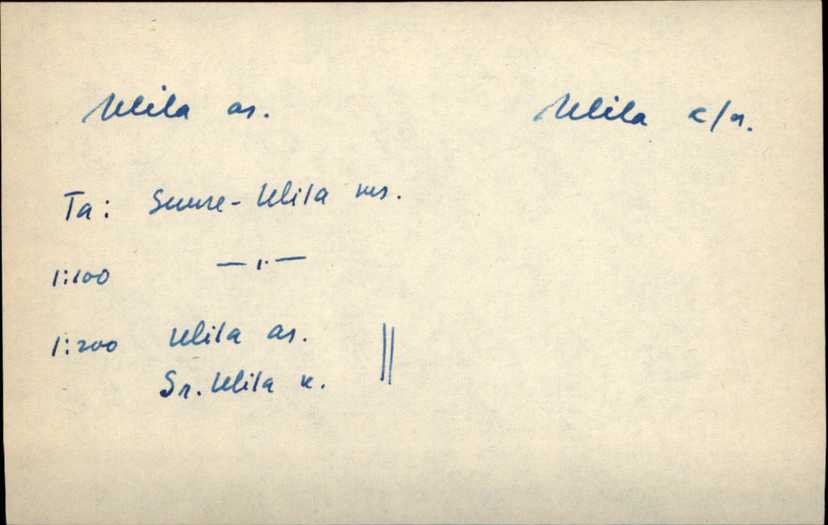 Ulila as. Ulila k/n.
Ta: Suure-Ulila ms.
1:100 — ı. —
1:200 Ulila as.
Sr. Ulila k.